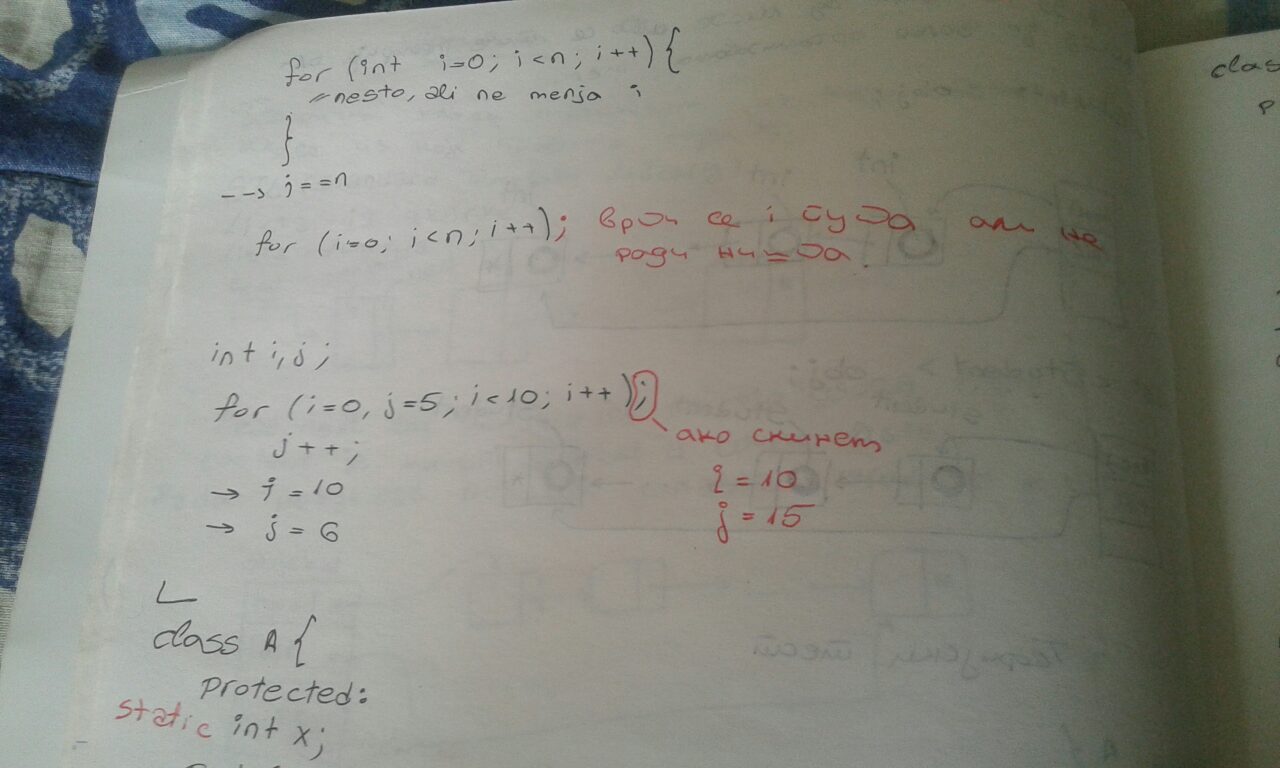 for (int i=0; i<n; i++) {
//nesto, ali ne menja i
}
--> i==n
for (i=0; i<n; i++); врти се i туда али не
ради ништа.
int i, j;
for (i=0, j=5; i<10; i++);
j++;
ако скинет
→ i = 10
i = 10
→ j = 6
j = 15
class A {
protected:
static int x;
clas
p